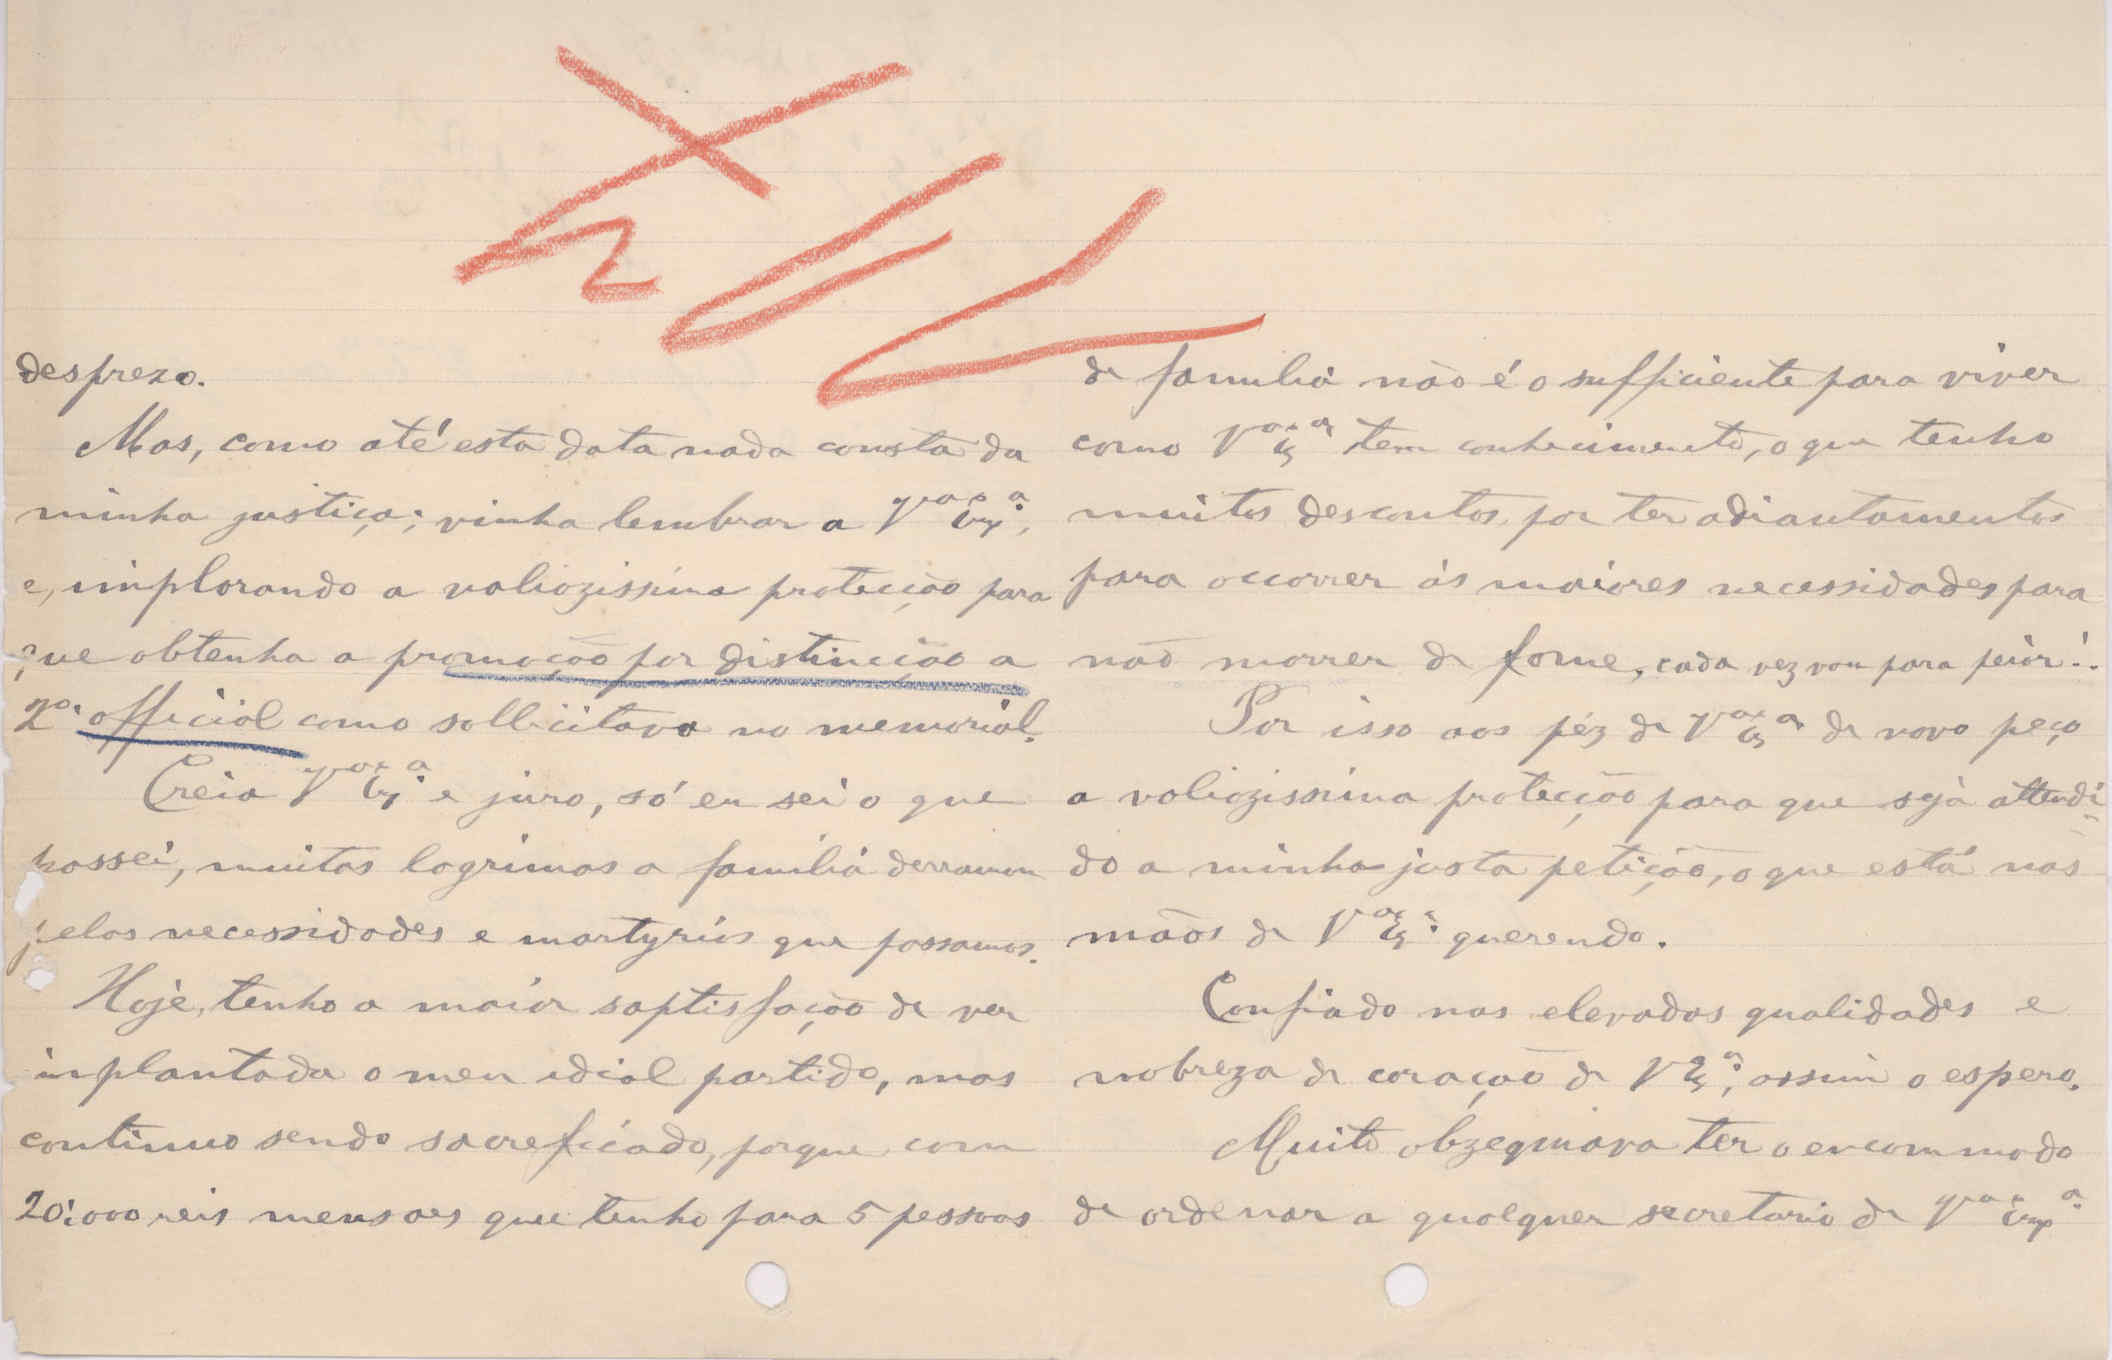 desprezo.
Mas, como até esta data nada consta da
minha justiça; vinha lembrar a V.ª Ex.ª,
e, implorando a valiozissima protecção para
que obtenha a promoção por distincção a
2º. official como sollicitava no memorial.
Creia V.ª Ex.ª e juro, só eu sei o que
passei, muitas lagrimas a familia derramou
pelas necessidades e martyrios que passamos.
Hoje, tenho a maior saptisfação de ver
inplantada o meu idial partido, mas
continuo sendo sacreficado, porque com
20:000 reis mensaes que tenho para 5 pessoas
de familia não é o sufficiente para viver
como V.ª Ex.ª tem conhecimento, o que tenho
muitos descontos por ter adiantamentos
para occorrer ás maiores necessidades para
não morrer de fome, cada vez vou para peior!.
Por isso aos péz de V.ª Ex.ª de novo peço
a valiozissima protecção para que seja attendi-
do a minha justa petição, o que está nas
mãos de V.ª Ex.ª querendo.
Confiado nas elevadas qualidades e
nobreza de coração de V. Ex.ª, assim o espero.
Muito obzequiava ter o encommodo
de ordenar a qualquer secretario de V.ª Ex.ª